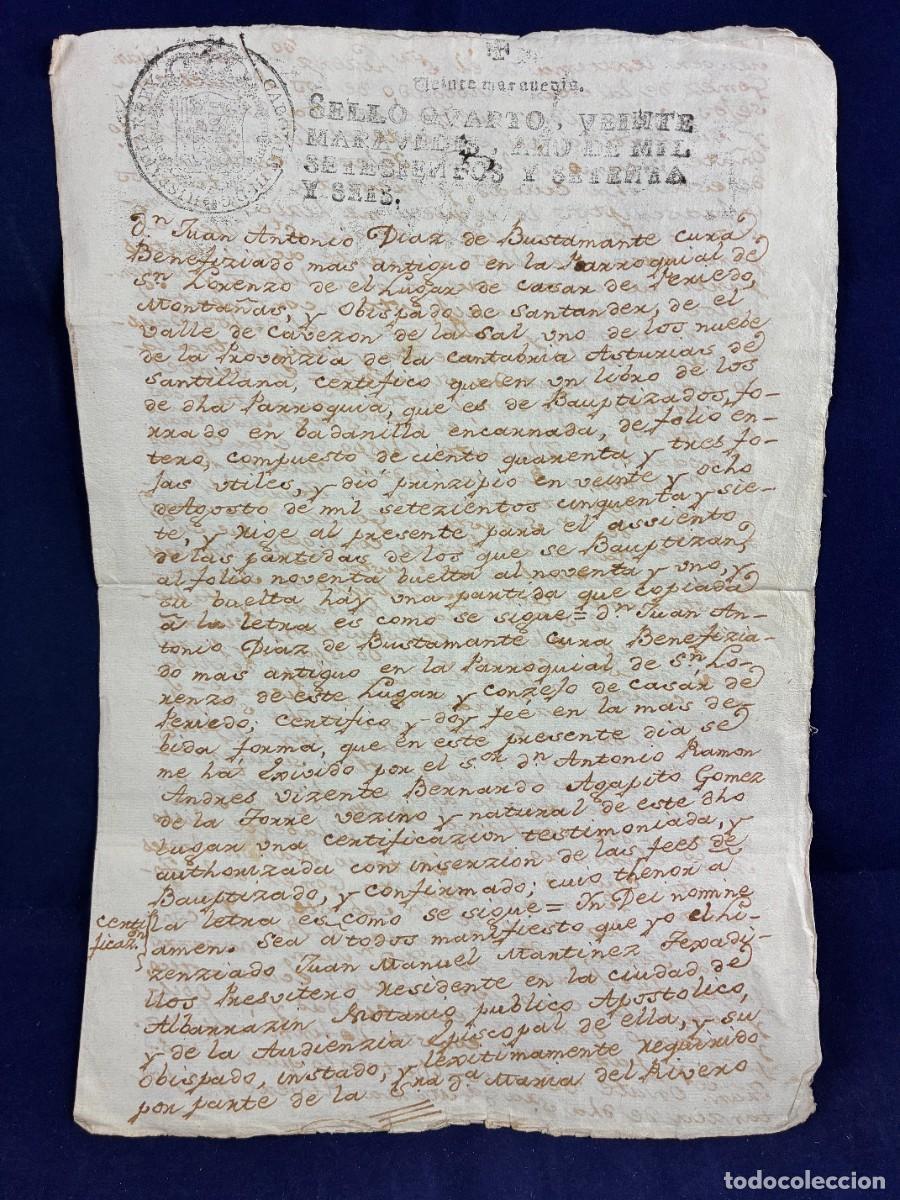 Veinte maravedis.
SELLO QVARTO, VEINTE
MARAVEDIS, AÑO DE MIL
SETECIENTOS Y SETENTA
Y SEIS.
Dn Juan Antonio Diaz de Bustamante cura
Benefiziado mas antiguo en la Parroquial de
Sn Lorenzo de el Lugar de Casar de Periedo,
Montañas, y Obispado de Santander, de el
Valle de Cavezon de la Sal, vno de los nuebe
de la Provinzia de la Cantabria Asturias de
Santillana, certifico que en vn libro de los
de dha Parroquia, que es de Bauptizados, fo-
rrado en badanilla encarnada, de folio en-
tero, compuesto de ciento quarenta y tres fo-
jas vtiles, y dió principio en veinte y ocho
de Agosto de mil setezientos cinquenta y sie-
te, y rige al presente para el assiento
de las partidas de los que se Bauptizan,
al folio noventa buelta al noventa y vno, y
su buelta háy vna partida que copiada
â la letra es como se sigue = dn Juan An-
tonio Diaz de Bustamante cura Benefizia-
do mas antiguo en la Parroquial de Sn Lo-
renzo de este Lugar y conzejo de Casár de
Periedo; certifico y doy feé en la mas de-
bida forma, que en este presente dia se
me há exivido por el sor dn Antonio Ramon
Andres Vizente Bernardo Agapito Gomez
de la Torre vezino y natural de este dho
Lugar vna certificazion testimoniada, y
authorizada con inserzion de las feés de
Bauptizado, y confirmado; cuio thenor a
la letra es como se sigue = In Dei nomine
certificazn
amen. Sea a todos manifiesto que yo el Li-
zenziado Juan Manuel Martinez Texadi-
llos Presvitero residente en la ciudad de
Albarrazin Notario publico Apostolico,
y de la Audienzia Episcopal de ella, y su
Obispado, instado, y lexitimamente requirido
por parte de la sra da Maria del Rivero
todocoleccion